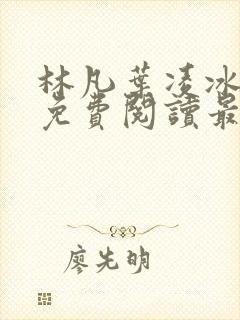 林凡葉凌冰
免費閱讀最
廖先明